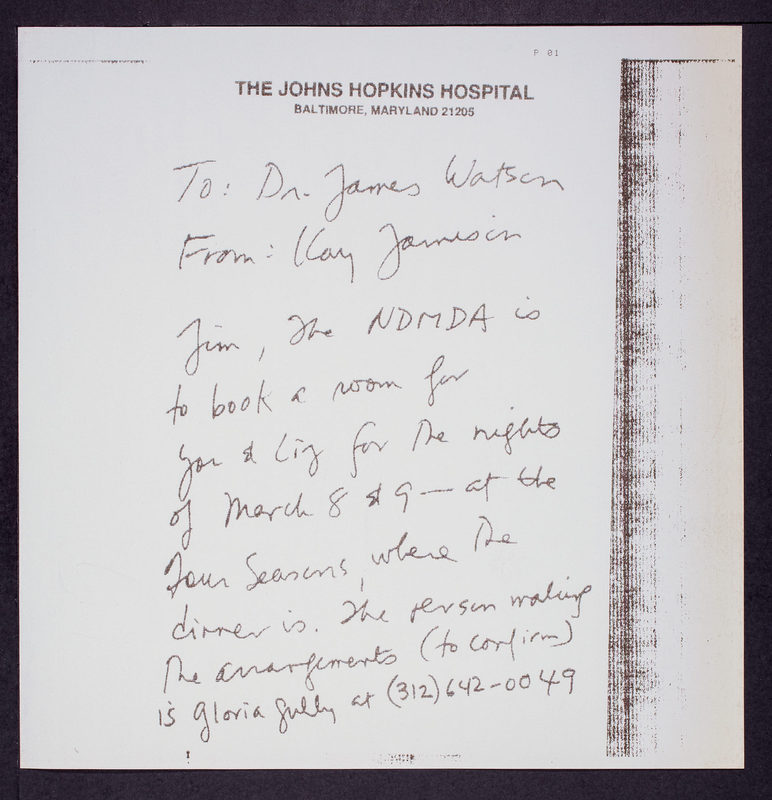 P 01
THE JOHNS HOPKINS HOSPITAL
BALTIMORE, MARYLAND 21205
To: Dr. James Watson
From: Kay Jamison
Jim, The NDMDA is
to book a room for
you & Liz for the nights
of March 8 & 9 — at the
Four Seasons, where the
dinner is. The person making
the arrangements (to confirm)
is Gloria Gully at (312) 642-0049